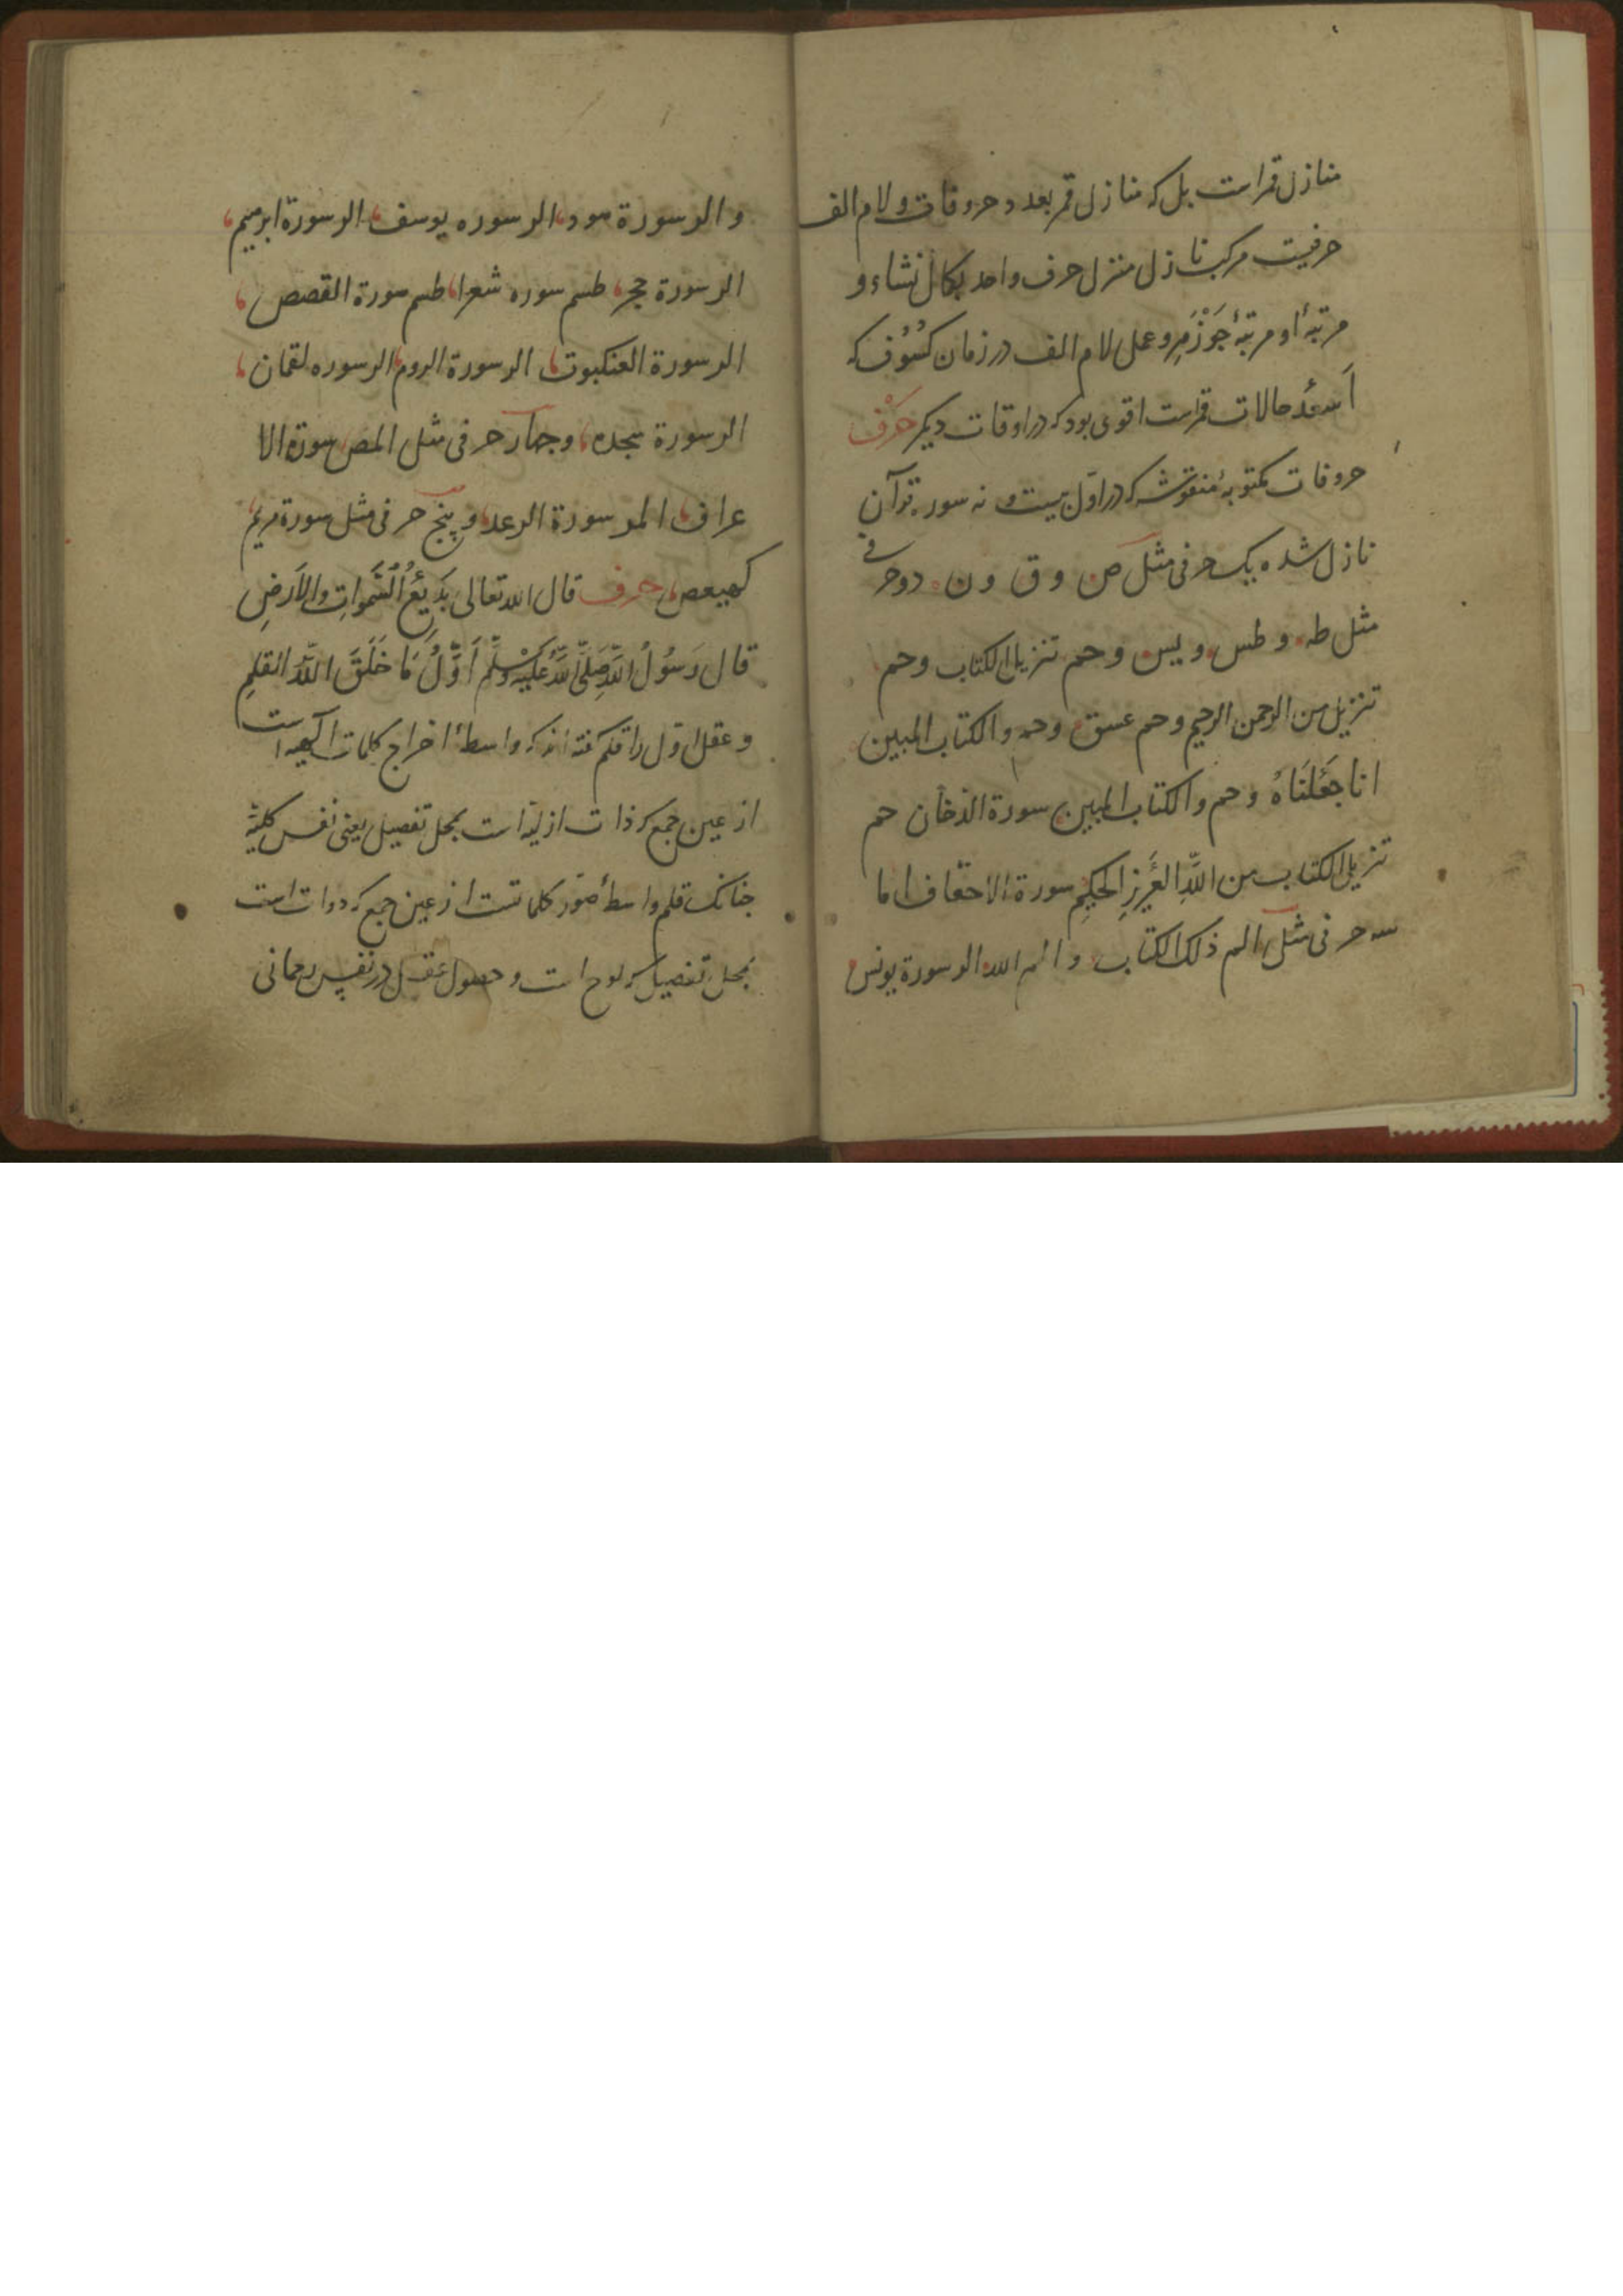 منازل قمر است بل که منازل قمر بعدد حروفات و لام الف
حرفیت مرکب نازل منزل حرف واحد بکمال نشاء و
مرتبهٔ او مرتبهٔ جَوْزَهِر و عمل لام الف در زمان کسُوُف که
اَسعد حالات قمر است اقوی بود که در اوقات دیکر حَرْف
حروفات مکتوبهٔ منقوشه که در اوّل بیست و نه سوره قرآن
نازل شده یک حرفی مثل ص و ق و ن دو حرفی
مثل طه و طس و یس و حم تنزیل الکتاب و حم
تنزیل من الرحمن الرحیم و حم عسق و حم و الکتاب المبین
انا جَعَلنَاهُ و حم و الکتاب المبین سورة الدخان حم
تنزیل الکتاب من اللّهِ العَزیزِ الحکیمِ سورة الاحقاف اما
سه حرفی مثل الم ذلک الکتاب و الم الله الر سورة یونس
و الر سورة هود الر سوره یوسف الر سورة ابرهیم
الر سورة حجر طسم سوره شعرا طسم سورة القصص
الر سورة العنکبوت الر سورة الروم الر سوره لقمان
الر سورة سجده و جهار حرفی مثل المص سورة الا
عراف المر سورة الرعد و پنج حرفی مثل سورة مریم
کهیعص حرف قال الله تعالی بَدیعُ السَّمواتِ و الاَرضِ
قال رَسُولُ اللّهِ صَلَّی اللّهُ عَلَیْهِ وَسَلَّم اَوَّلُ مَا خَلَقَ اللّهُ القلم
و عقل اوّل را قلم گفته‌اند که واسطهٔ اخراج کلمات الهیه است
از عین جمع که ذات ازلیه است بمحل تفصیل یعنی نفس کلیّه
جنانک قلم واسطهٔ صور کلماتست از عین جمع که دوات است
بمحل تفصیل که لوح است و حصول عقل در نفس رحمانی